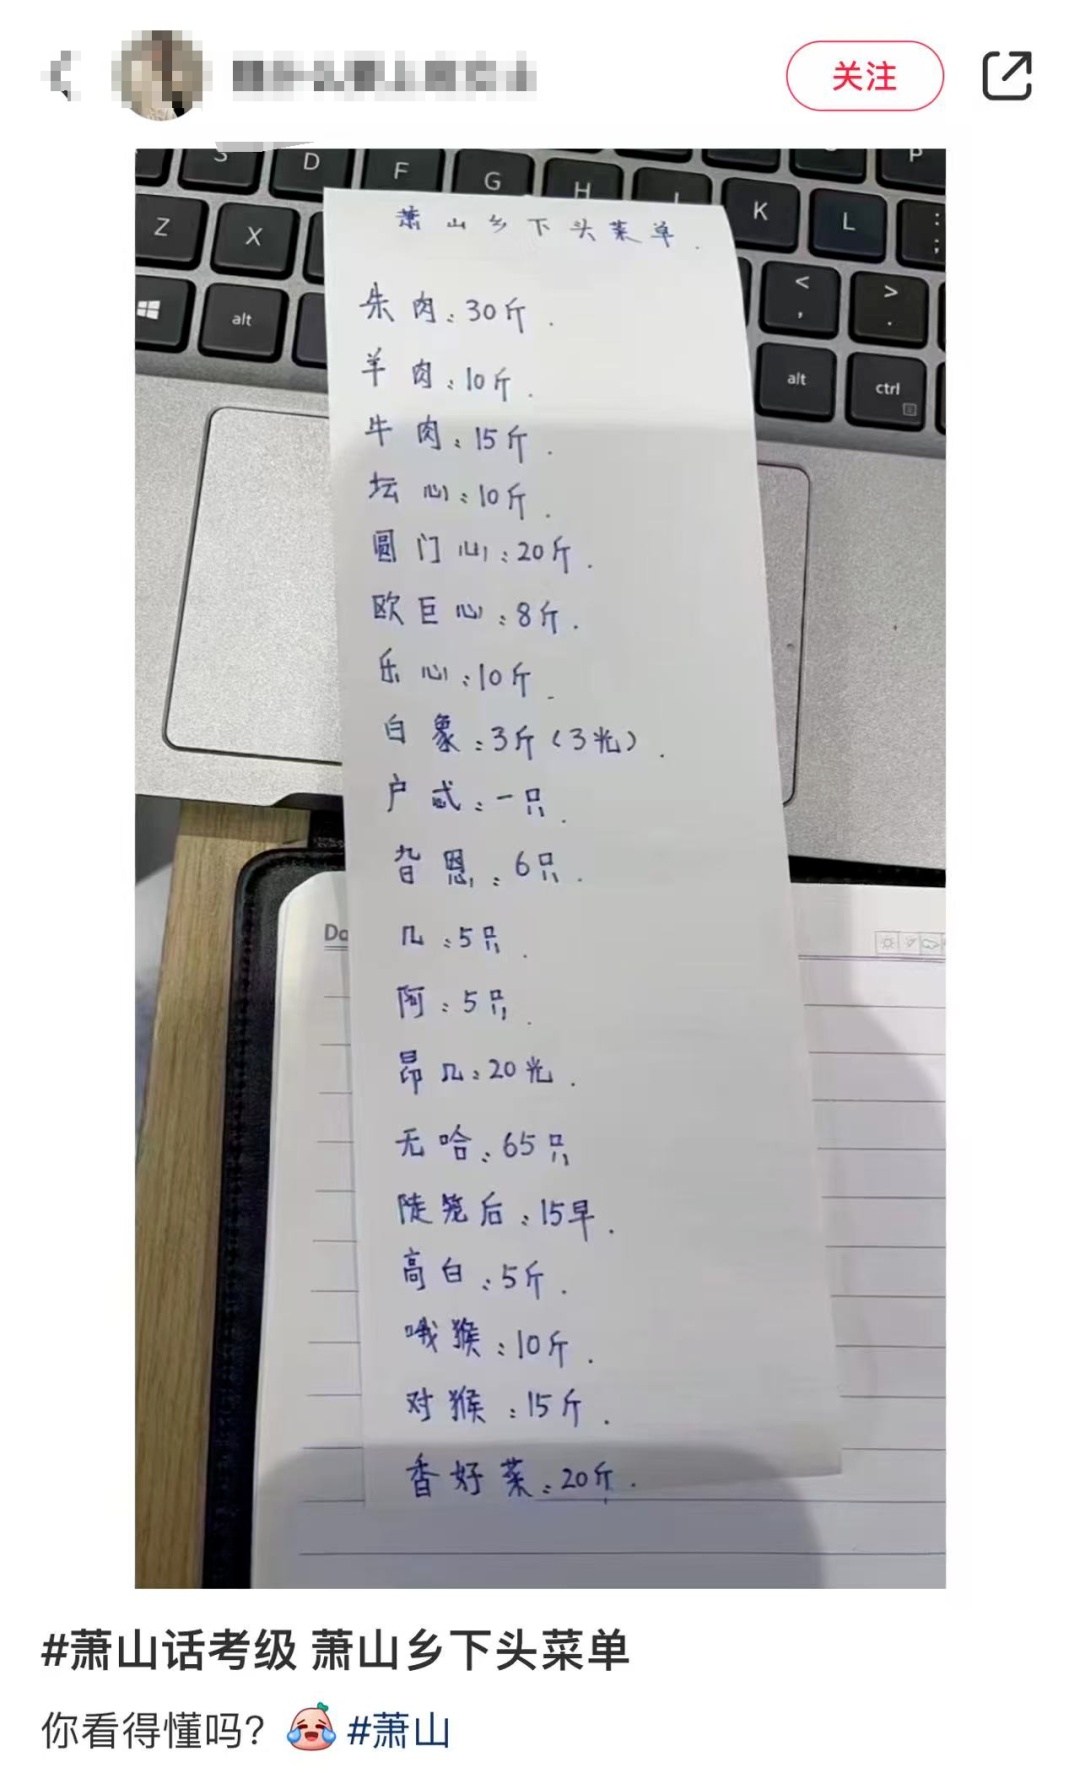 关注
S D F G H J K L P
Z X < , > . : ;
alt alt ctrl
萧山乡下头菜单.
朱肉:30斤.
羊肉:10斤.
牛肉:15斤.
坛心:10斤.
圆门心:20斤.
欧巨心:8斤.
乐心:10斤.
白象:3斤(3光).
户忒:一只.
恩:6只.
几:5只.
阿:5只.
昂几:20光.
无哈:65只
陡笼后:15早.
高白:5斤.
哦猴:10斤.
对猴:15斤.
香好菜:20斤.
#萧山话考级 萧山乡下头菜单
你看得懂吗? #萧山